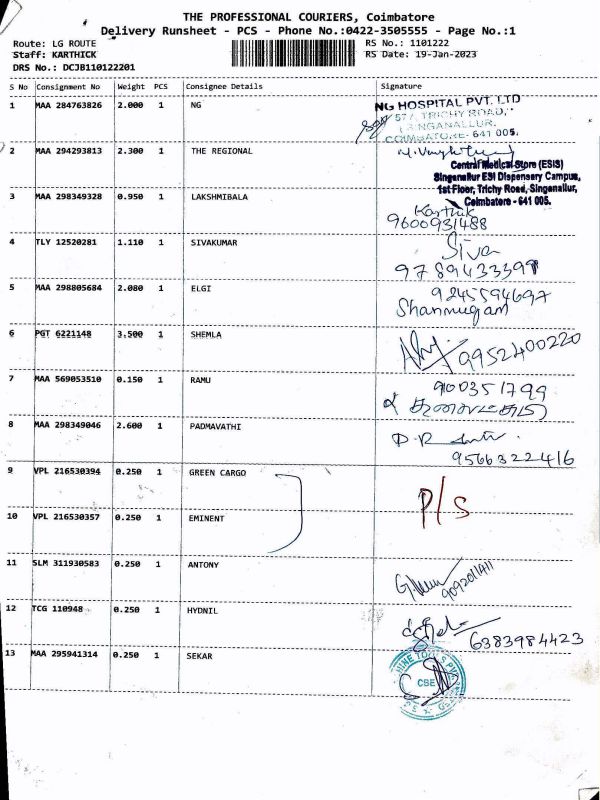 THE PROFESSIONAL COURIERS, Coimbatore
Delivery Runsheet - PCS - Phone No.:0422-3505555 - Page No.:1
Route: LG ROUTE RS No.: 1101222
Staff: KARTHICK RS Date: 19-Jan-2023
DRS No.: DCJB110122201
S No Consignment No Weight PCS Consignee Details Signature
1 MAA 284763826 2.000 1 NG
NG HOSPITAL PVT. LTD
577, TRICHY ROAD,
SINGANALLUR.
COIMBATORE- 641 005.
2 MAA 294293813 2.300 1 THE REGIONAL
Central Medical Store (ESIS)
Singanallur ESI Dispensary Campus,
1st Floor, Trichy Road, Singanallur,
Coimbatore - 641 005.
3 MAA 298349328 0.950 1 LAKSHMIBALA
Karthik
9600931488
4 TLY 12520281 1.110 1 SIVAKUMAR
Siva
9789433399
5 MAA 298805684 2.080 1 ELGI
9245594697
Shanmugam
6 PGT 6221148 3.500 1 SHEMLA
9952400220
7 MAA 569053510 0.150 1 RAMU
9100351799
8 MAA 298349046 2.600 1 PADMAVATHI
9566322416
9 VPL 216530394 0.250 1 GREEN CARGO
P/S
10 VPL 216530357 0.250 1 EMINENT
11 SLM 311930583 0.250 1 ANTONY
9092011411
12 TCG 110948 0.250 1 HYDNIL
6383984423
13 MAA 295941314 0.250 1 SEKAR
CSE